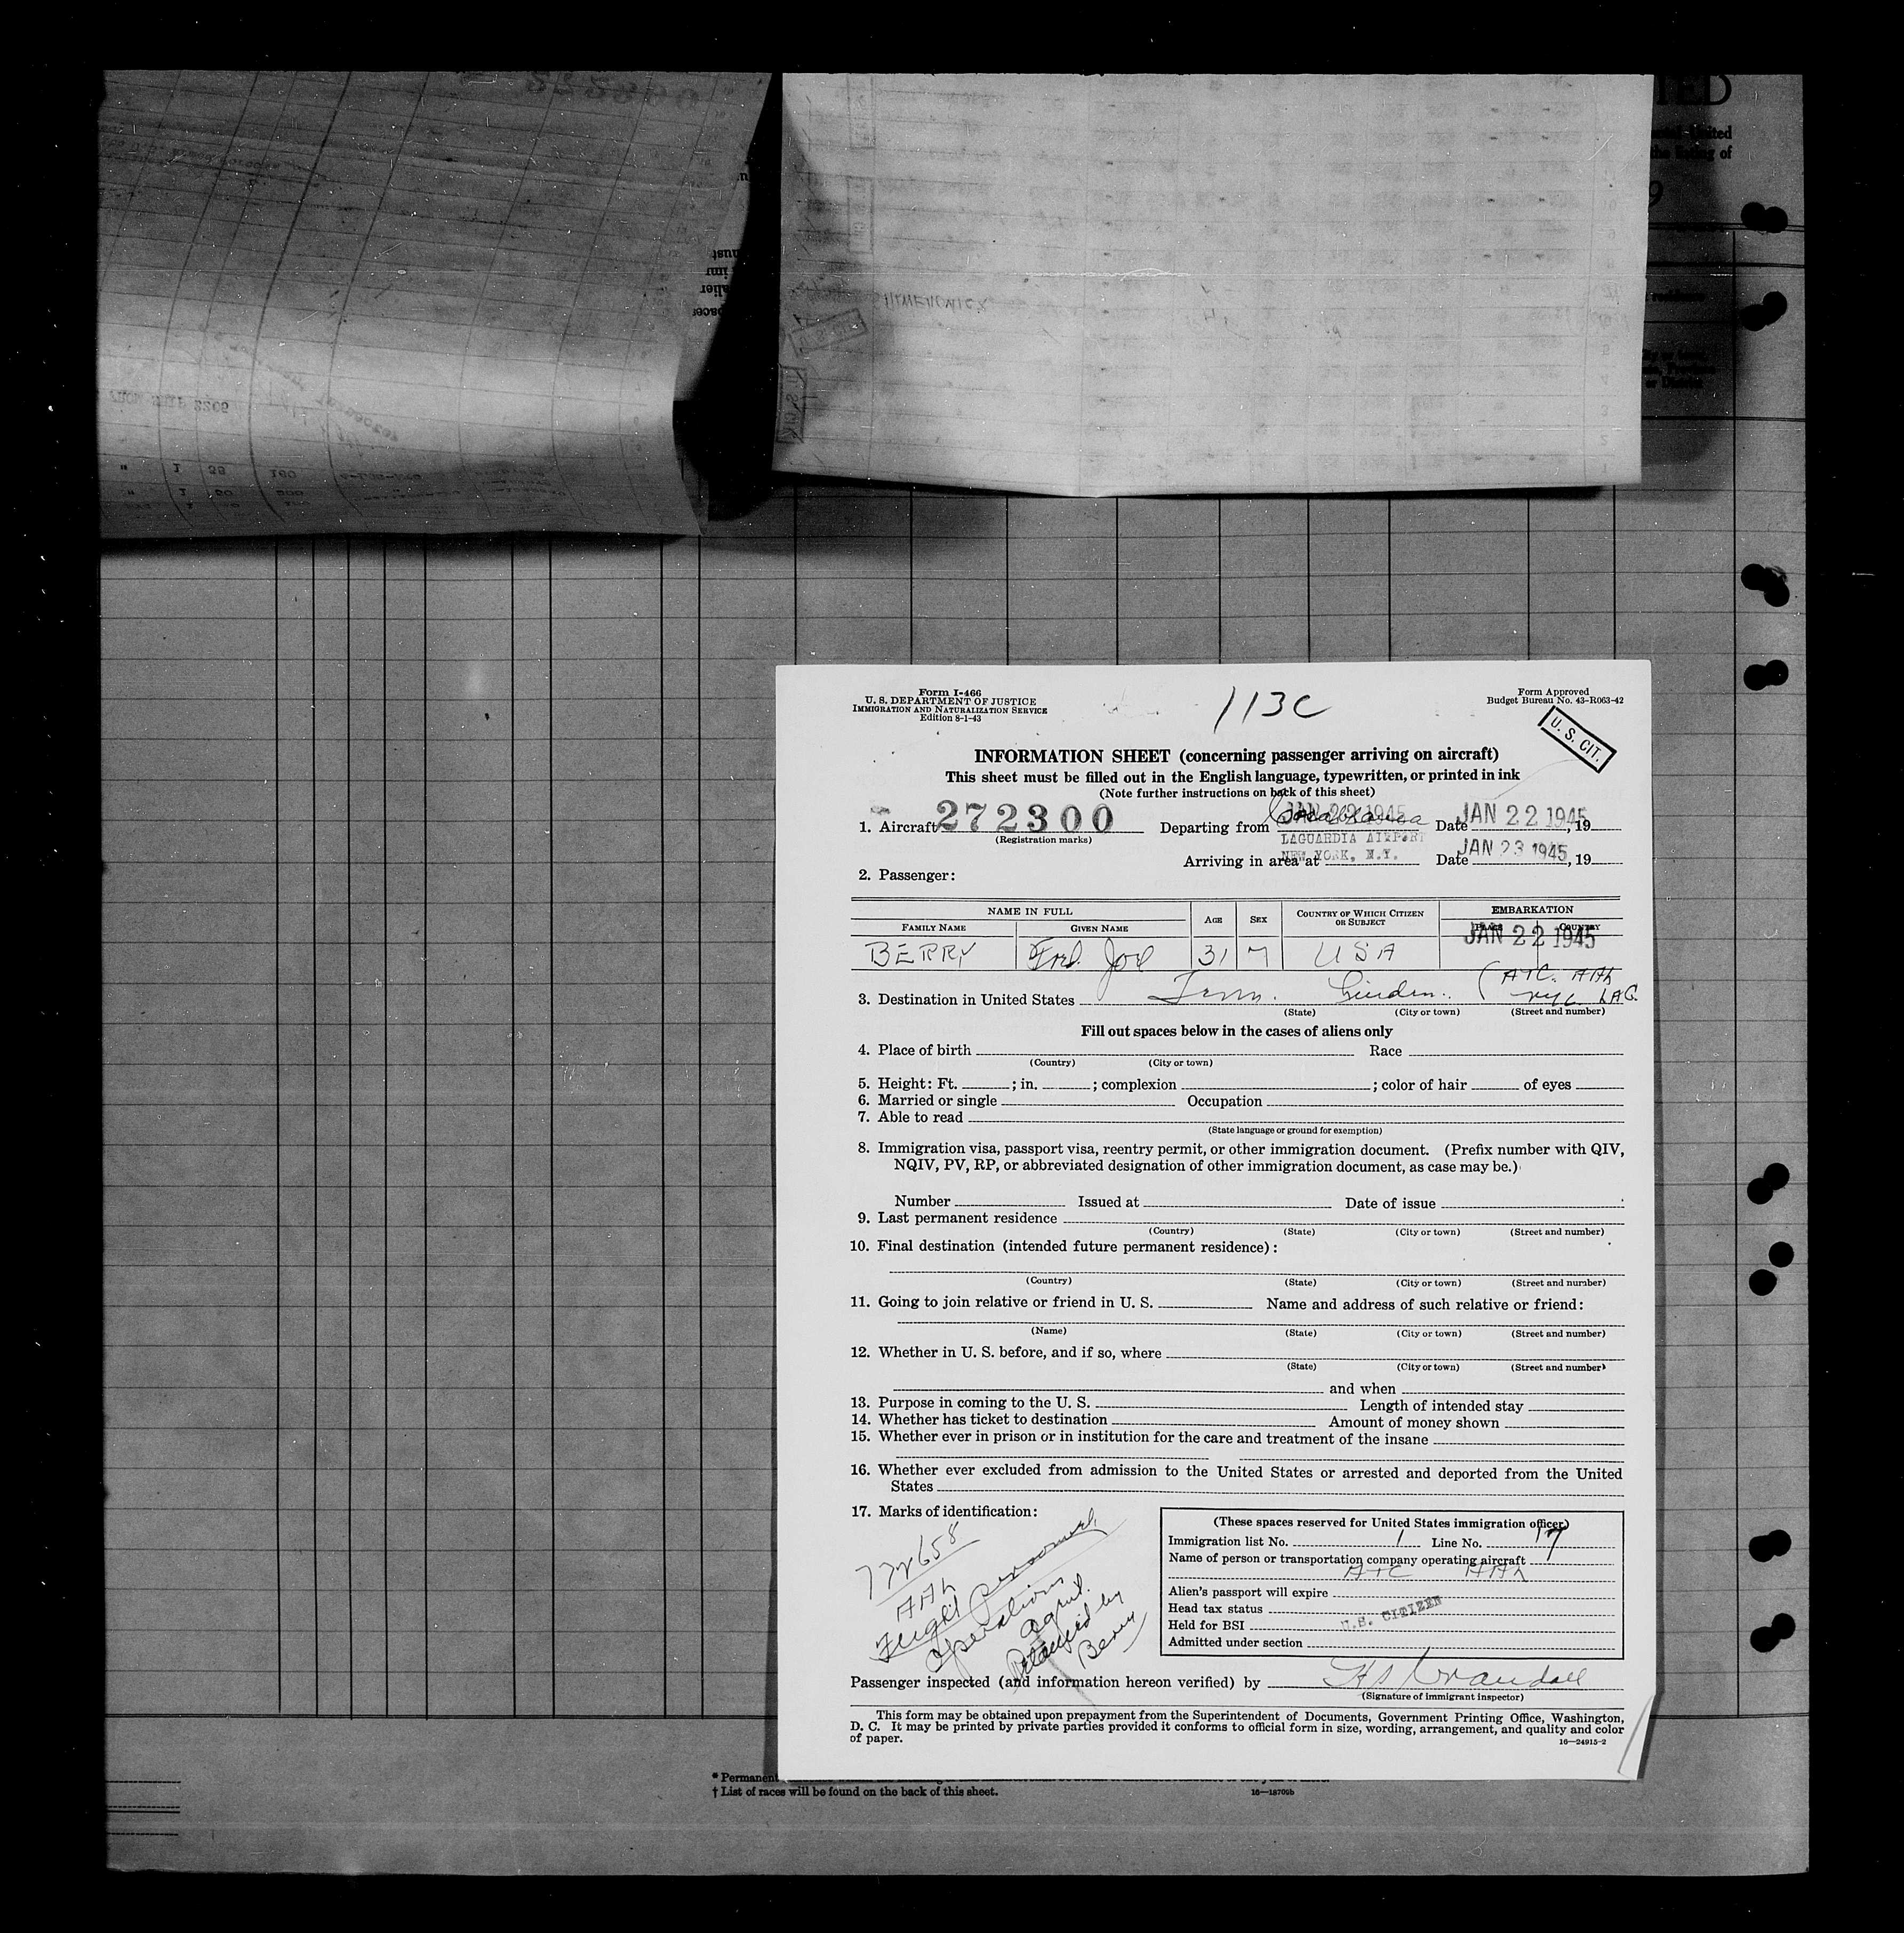 Form I-466
U. S. DEPARTMENT OF JUSTICE
IMMIGRATION AND NATURALIZATION SERVICE
Edition 8-1-43
113C
Form Approved
Budget Bureau No. 43-R063-42
U. S. CIT.
INFORMATION SHEET (concerning passenger arriving on aircraft)
This sheet must be filled out in the English language, typewritten, or printed in ink
(Note further instructions on back of this sheet)
1. Aircraft 272300 Departing from Casablanca JAN 22 1945 Date JAN 22 1945, 19
(Registration marks)
LAGUARDIA AIRPORT
Arriving in area at NEW YORK, N.Y. Date JAN 23 1945, 19
2. Passenger:
NAME IN FULL AGE SEX COUNTRY OF WHICH CITIZEN OR SUBJECT EMBARKATION
FAMILY NAME GIVEN NAME PLACE COUNTRY
BERRY Fred. Joe 31 M USA JAN 22 1945
3. Destination in United States Tenn. Linden. (ATC. AAL
NYC LAG.
(State) (City or town) (Street and number)
Fill out spaces below in the cases of aliens only
4. Place of birth Race
(Country) (City or town)
5. Height: Ft. ; in. ; complexion ; color of hair of eyes
6. Married or single Occupation
7. Able to read
(State language or ground for exemption)
8. Immigration visa, passport visa, reentry permit, or other immigration document. (Prefix number with QIV,
NQIV, PV, RP, or abbreviated designation of other immigration document, as case may be.)
Number Issued at Date of issue
9. Last permanent residence
(Country) (State) (City or town) (Street and number)
10. Final destination (intended future permanent residence):
(Country) (State) (City or town) (Street and number)
11. Going to join relative or friend in U. S. Name and address of such relative or friend:
(Name) (State) (City or town) (Street and number)
12. Whether in U. S. before, and if so, where
(State) (City or town) (Street and number)
and when
13. Purpose in coming to the U. S. Length of intended stay
14. Whether has ticket to destination Amount of money shown
15. Whether ever in prison or in institution for the care and treatment of the insane
16. Whether ever excluded from admission to the United States or arrested and deported from the United
States
17. Marks of identification:
772658
AAL
Flight personnel
operations
agent.
by
Berry
(These spaces reserved for United States immigration officer)
Immigration list No. 1 Line No. 17
Name of person or transportation company operating aircraft
ATC AAL
Alien's passport will expire
Head tax status
U.S. CITIZEN
Held for BSI
Admitted under section
Passenger inspected (and information hereon verified) by H S Crandall
(Signature of immigrant inspector)
This form may be obtained upon prepayment from the Superintendent of Documents, Government Printing Office, Washington,
D. C. It may be printed by private parties provided it conforms to official form in size, wording, arrangement, and quality and color
of paper.
16—24915-2
* Permanent
† List of races will be found on the back of this sheet.